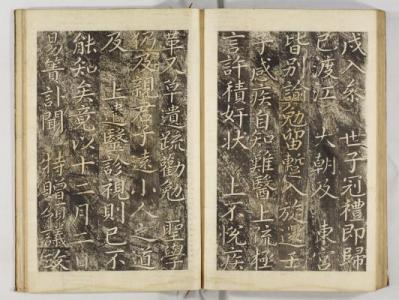 戊入参 世子冠禮即歸
已渡江 大朝及 東宮
皆別諭勉留暫入旋還壬
子感疾自知難醫上疏極
言許積奸狀 上不悅疾
革又草遺疏勸勉 聖學
仍及親君子遠小人之道
及 上遣醫診視則已不
能知矣竟以十二月一日
易簀訃聞 特贈領議政